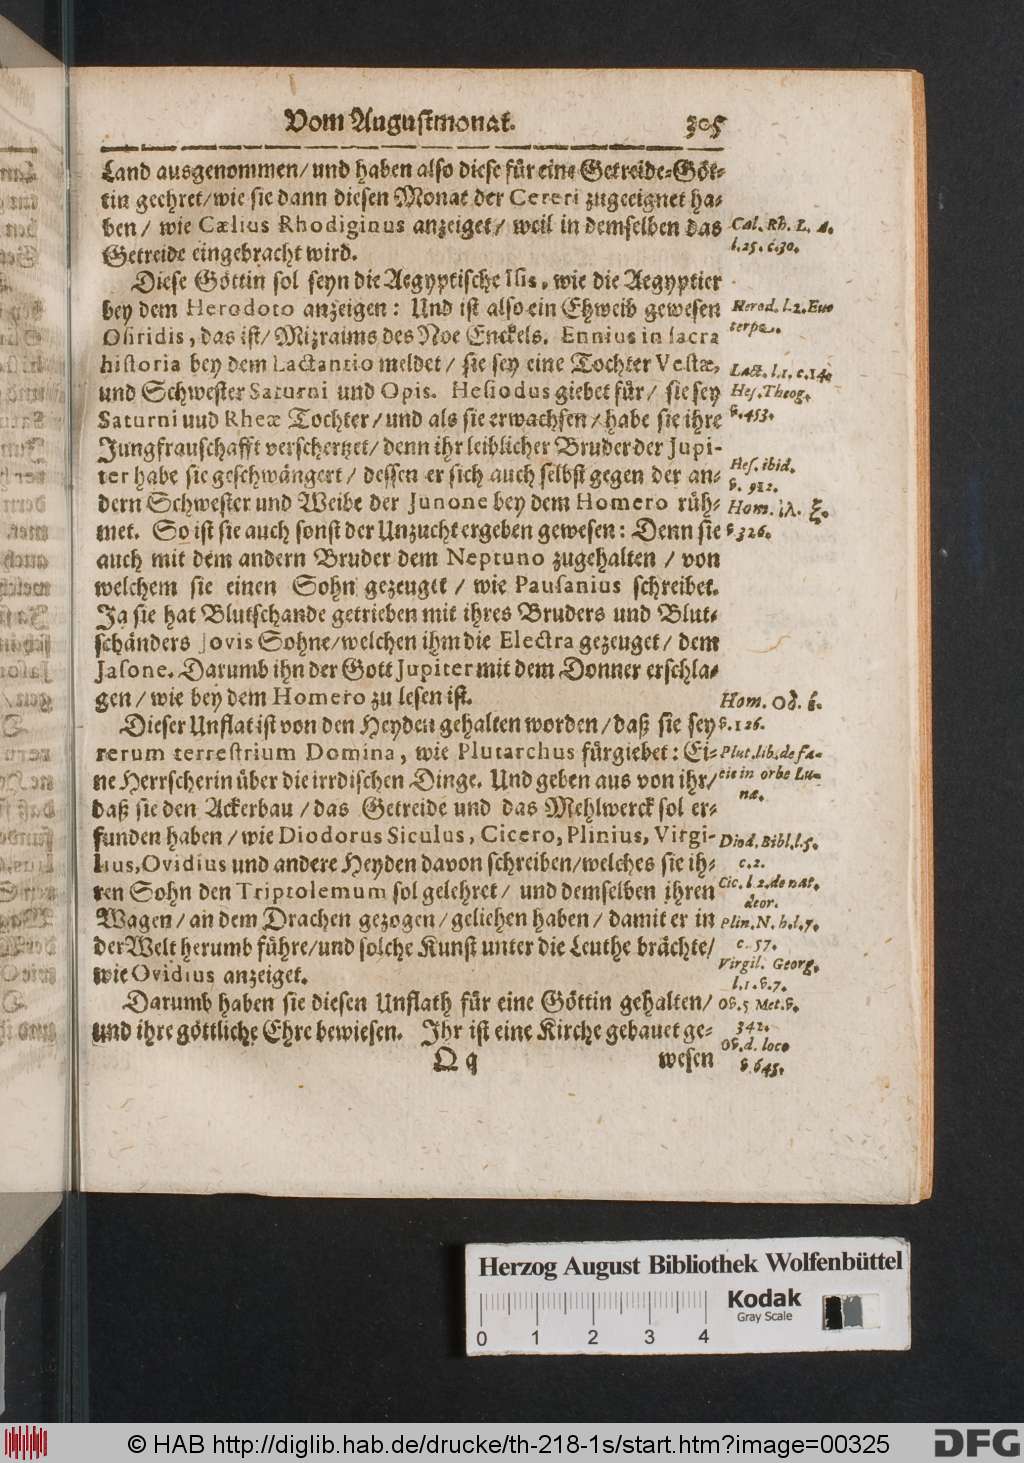 Vom Augustmonat. 305
Land ausgenommen/ und haben also diese für eine Getreide-Göt-
tin geehret/ wie sie dann diesen Monat der Cereri zugeeignet ha-
ben/ wie Cælius Rhodiginus anzeiget/ weil in demselben das
Getreide eingebracht wird.
Cæl. Rh. L. A.
l. 25. c. 30.
Diese Göttin sol seyn die Aegyptische Isis, wie die Aegyptier
bey dem Herodoto anzeigen: Und ist also ein Ehweib gewesen
Osiridis, das ist/ Mizraims des Noe Enckels. Ennius in sacra
historia bey dem Lactantio meldet/ sie sey eine Tochter Vestæ,
und Schwester Saturni und Opis. Hesiodus giebet für/ sie sey
Saturni uud Rheæ Tochter/ und als sie erwachsen/ habe sie ihre
Jungfrauschafft verschertzet/ denn ihr leiblicher Bruder der Jupi-
ter habe sie geschwängert/ dessen er sich auch selbst gegen der an-
dern Schwester und Weibe der Junone bey dem Homero rüh-
met. So ist sie auch sonst der Unzucht ergeben gewesen: Denn sie
auch mit dem andern Bruder dem Neptuno zugehalten / von
welchem sie einen Sohn gezeuget / wie Pausanius schreibet.
Ja sie hat Blutschande getrieben mit ihres Bruders und Blut-
schänders Jovis Sohne/ welchen ihm die Electra gezeuget/ dem
Jasone. Darumb ihn der Gott Jupiter mit dem Donner erschla-
gen/ wie bey dem Homero zu lesen ist.
Herod. l. 2. Eu-
terpe.
Lact. l. 1. c. 14.
Hes. Theog.
v. 453.
Hes. ibid.
v. 912.
Hom. ἰλ. ξ.
v 326.
Hom. Od. ε.
v. 126.
Dieser Unflat ist von den Heyden gehalten worden/ daß sie sey
rerum terrestrium Domina, wie Plutarchus fürgiebet: Ei-
ne Herrscherin über die irrdischen Dinge. Und geben aus von ihr/
daß sie den Ackerbau / das Getreide und das Mehlwerck sol er-
funden haben / wie Diodorus Siculus, Cicero, Plinius, Virgi-
lius, Ovidius und andere Heyden davon schreiben/ welches sie ih-
ren Sohn den Triptolemum sol gelehret/ und demselben ihren
Wagen/ an dem Drachen gezogen/ geliehen haben/ damit er in
der Welt herumb führe/ und solche Kunst unter die Leuthe brächte/
wie Ovidius anzeiget.
Plut. lib. de fa-
cie in orbe Lu-
næ.
Diod. Bibl. l. 5.
c. 2.
Cic. l. 2. de nat.
deor.
Plin. N. h. l. 7.
c. 57.
Virgil. Georg.
l. 1. v. 7.
Ov. 5 Met. v.
342.
Ov. d. loco
v. 645.
Darumb haben sie diesen Unflath für eine Göttin gehalten/
und ihre göttliche Ehre bewiesen. Ihr ist eine Kirche gebauet ge-
Q q wesen
Herzog August Bibliothek Wolfenbüttel
Kodak
Gray Scale
0 1 2 3 4
© HAB http://diglib.hab.de/drucke/th-218-1s/start.htm?image=00325
DFG